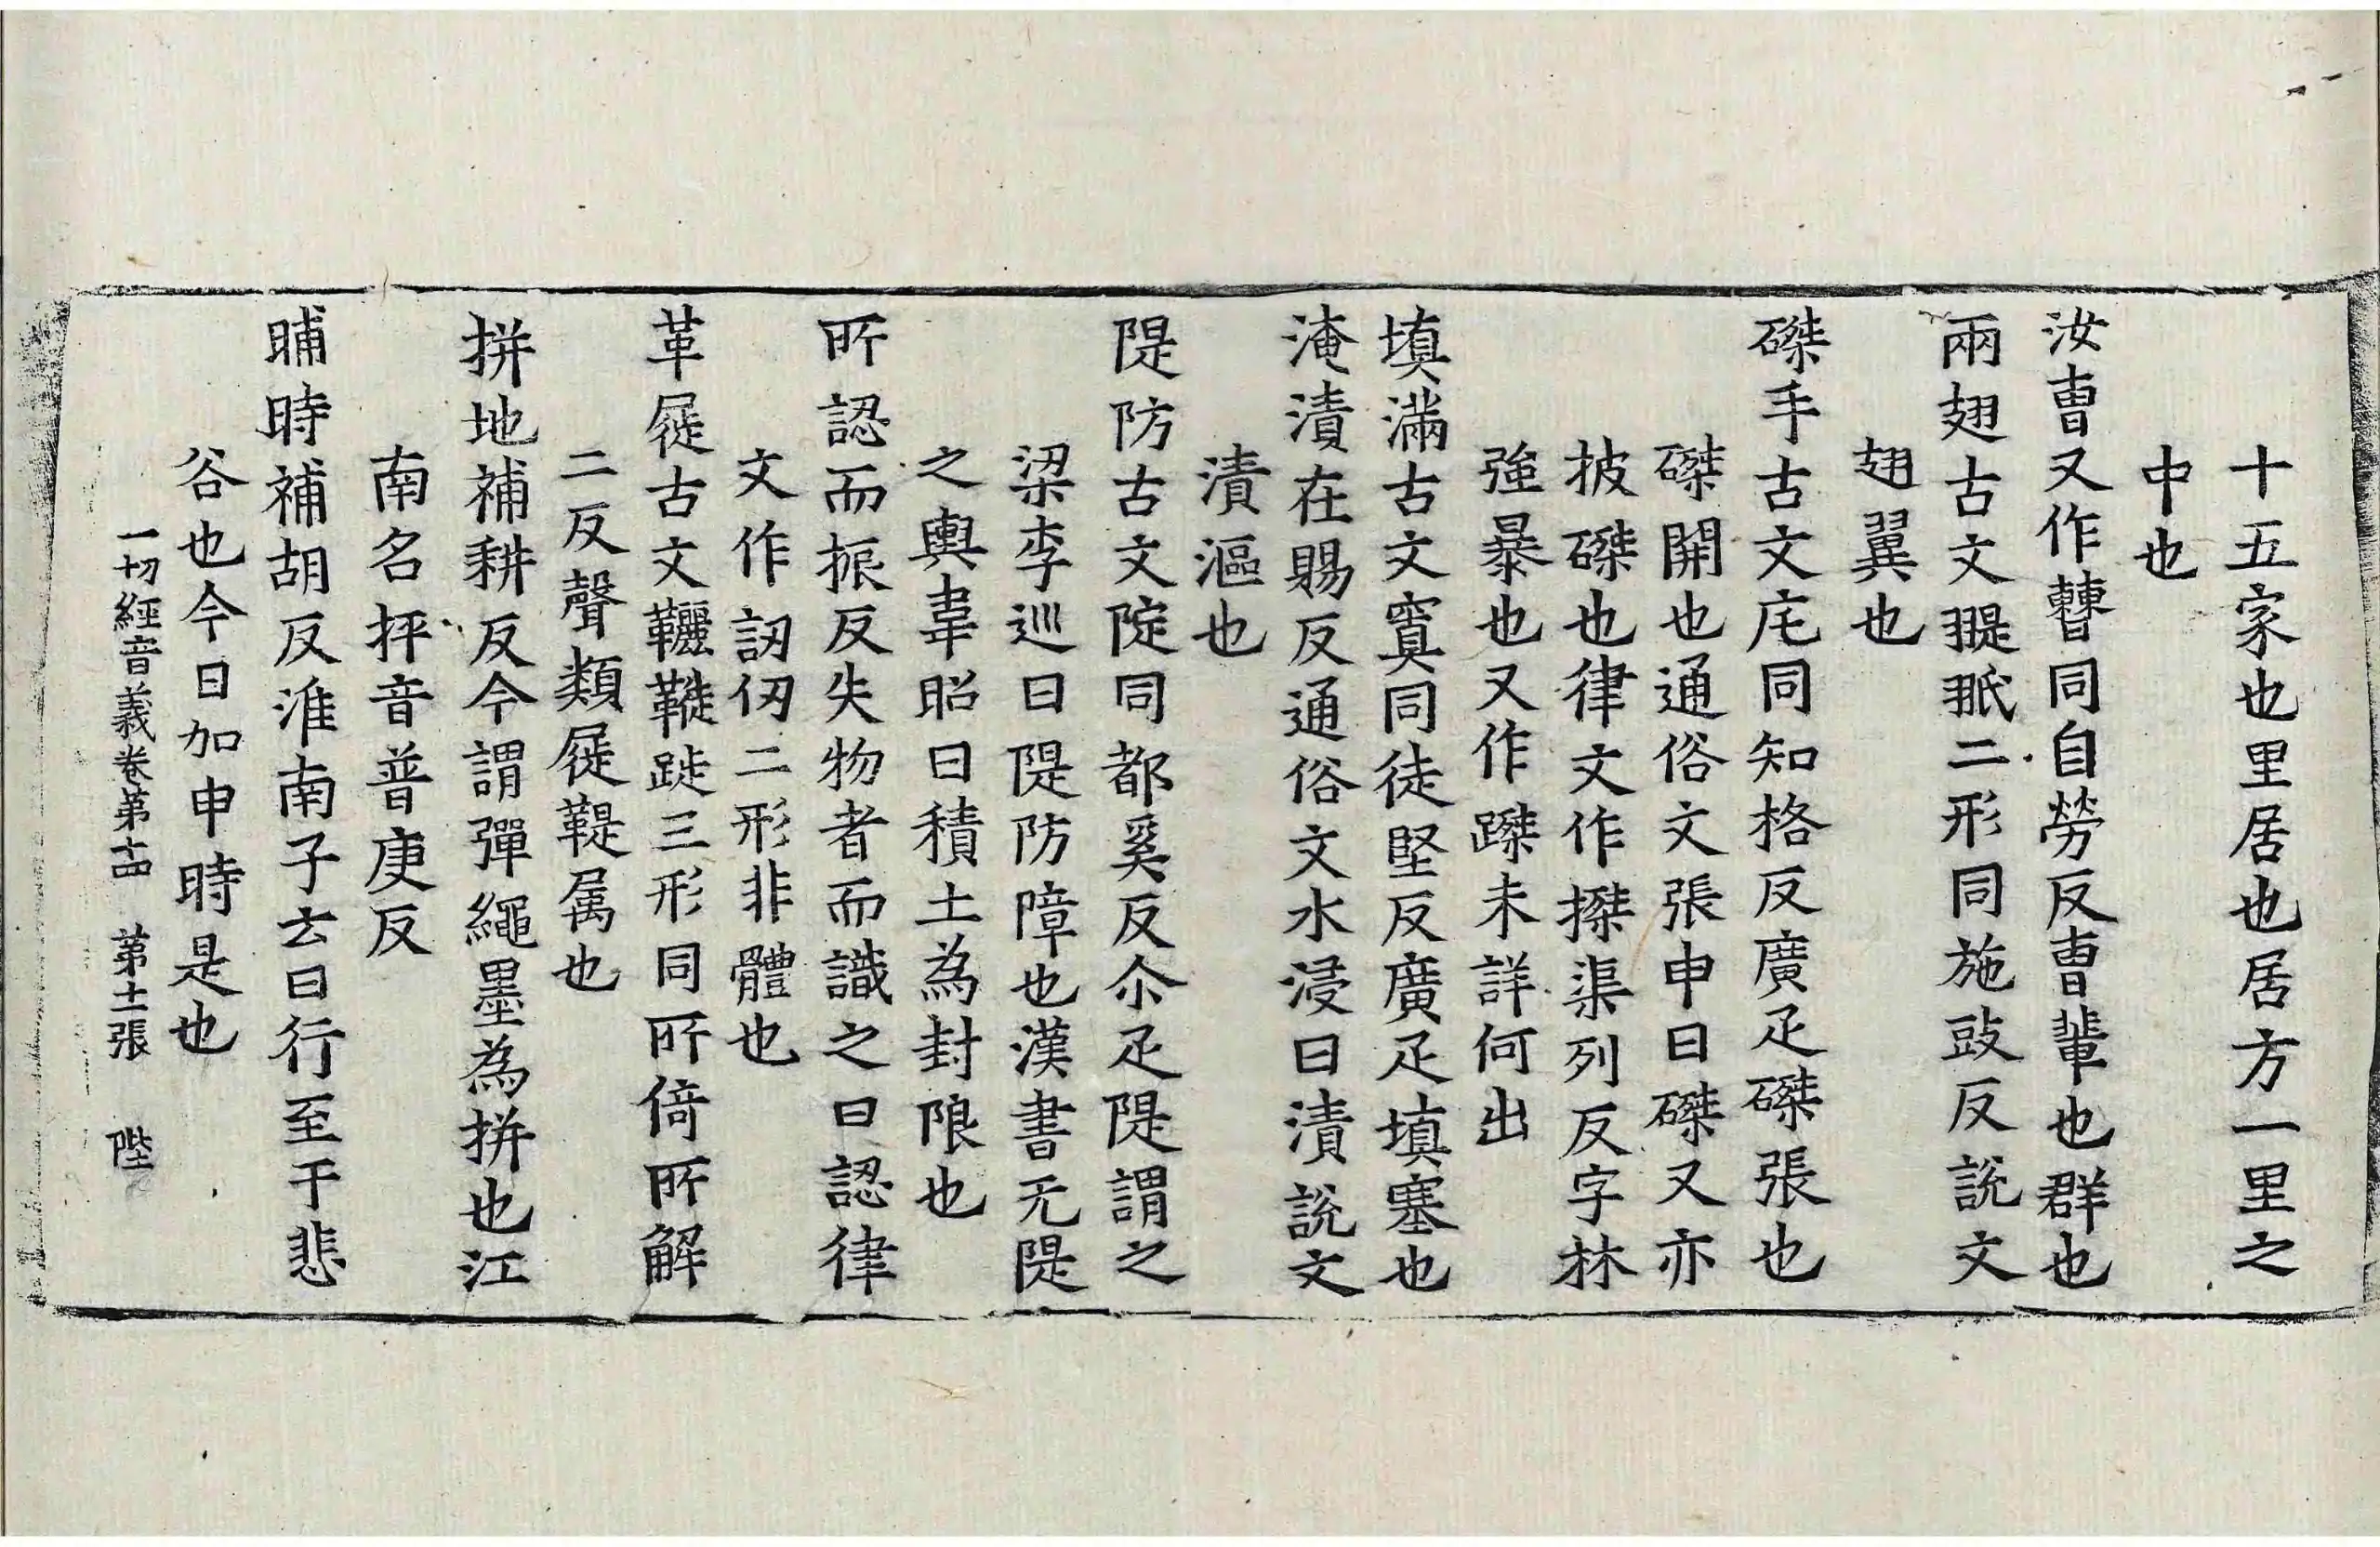 十五家也里居也居方一里之
中也
汝曺又作𣍘同自勞反曺輩也群也
兩翅古文翨𦐊二形同施豉反說文
翅翼也
磔手古文庀同知格反廣疋磔張也
磔開也通俗文張申曰磔又亦
披磔也律文作搩渠列反字林
強暴也又作蹀未詳何出
填滿古文窴同徒堅反廣疋填塞也
淹漬在賜反通俗文水浸曰漬說文
漬漚也
隄防古文隄同都奚反尒疋隄謂之
梁李巡曰隄防障也漢書无隄
之輿韋昭曰積土為封限也
所認而振反失物者而識之曰認律
文作訒仞二形非體也
革屣古文䩾鞾𨂂三形同所倚所解
二反聲類屣鞮属也
拼地補耕反今謂彈繩墨為拼也江
南名抨音普庚反
晡時補胡反淮南子云日行至于悲
谷也今日加申時是也
一切經音義卷第十四 第十二張 陛